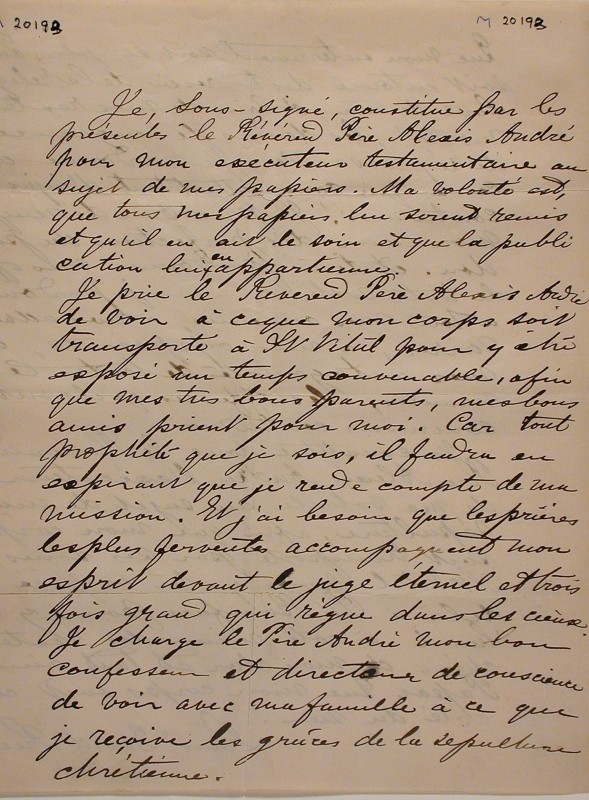 M 20193
M 20193
Je, sous-signé, constitue par les
présentes le Révérend Père Alexis André
pour mon exécuteur testamentaire au
sujet de mes papiers. Ma volonté est,
que tous mes papiers leu soient remis
et qu'il en ait le soin et que la publi
cation lui en appartienne
Je prie le Révérend Père Alexis André
de voir à ceque mon corps soit
transporté à St Vital pour y être
exposé un temps convenable, afin
que mes très bons parents, mes bons
amis prient pour moi. Car tout
prophète que je sois, il faudra en
expirant que je rende compte de ma
mission. Et j'ai besoin que les prières
les plus ferventes accompagnent mon
esprit devant le juge éternel et trois
fois grand qui règne dans les cieux.
Je charge le Père André mon bon
confesseur et directeur de conscience
de voir avec ma famille à ce que
je reçoive les grâces de la sépulture
chrétienne.